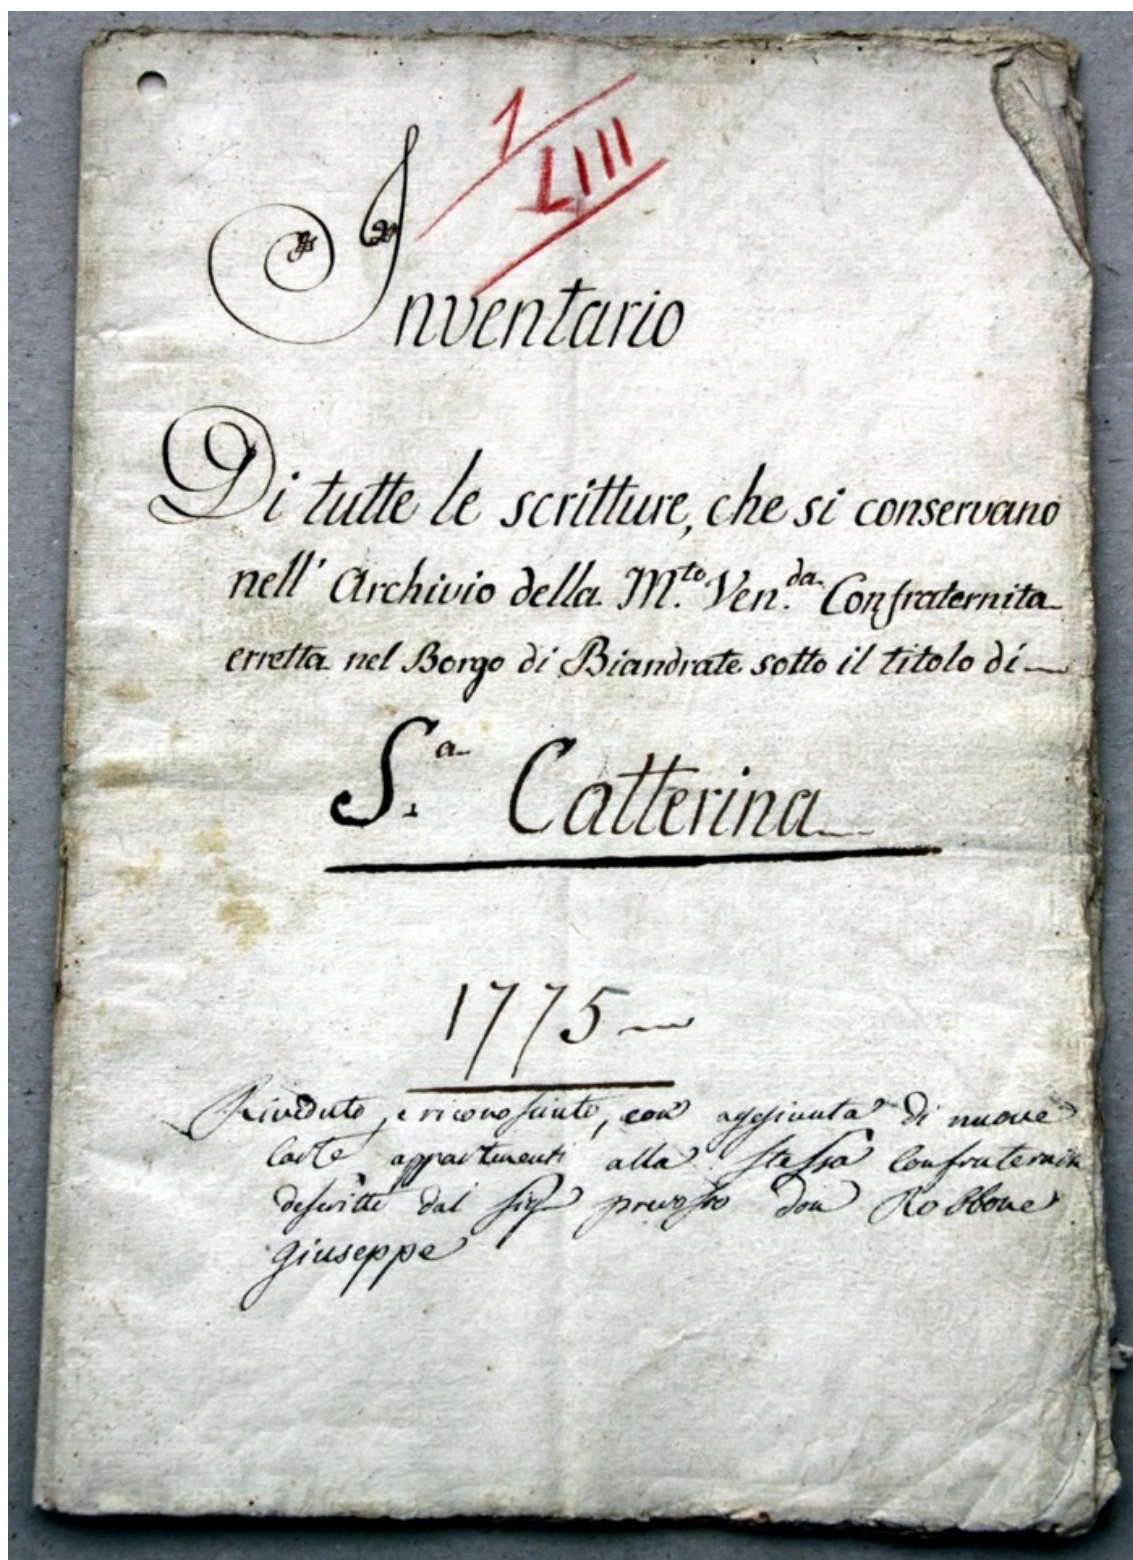 1
LIII
Inventario
Di tutte le scritture, che si conservano
nell' Archivio della M.to Ven.da Confraternita
erretta nel Borgo di Biandrate sotto il titolo di
S.a Catterina
1775
Riveduto, e riconosciuto, con aggiunta di nuove
carte appartenenti alla stessa Confraternita
descritte dal sig.r prevosto don Robbone
Giuseppe